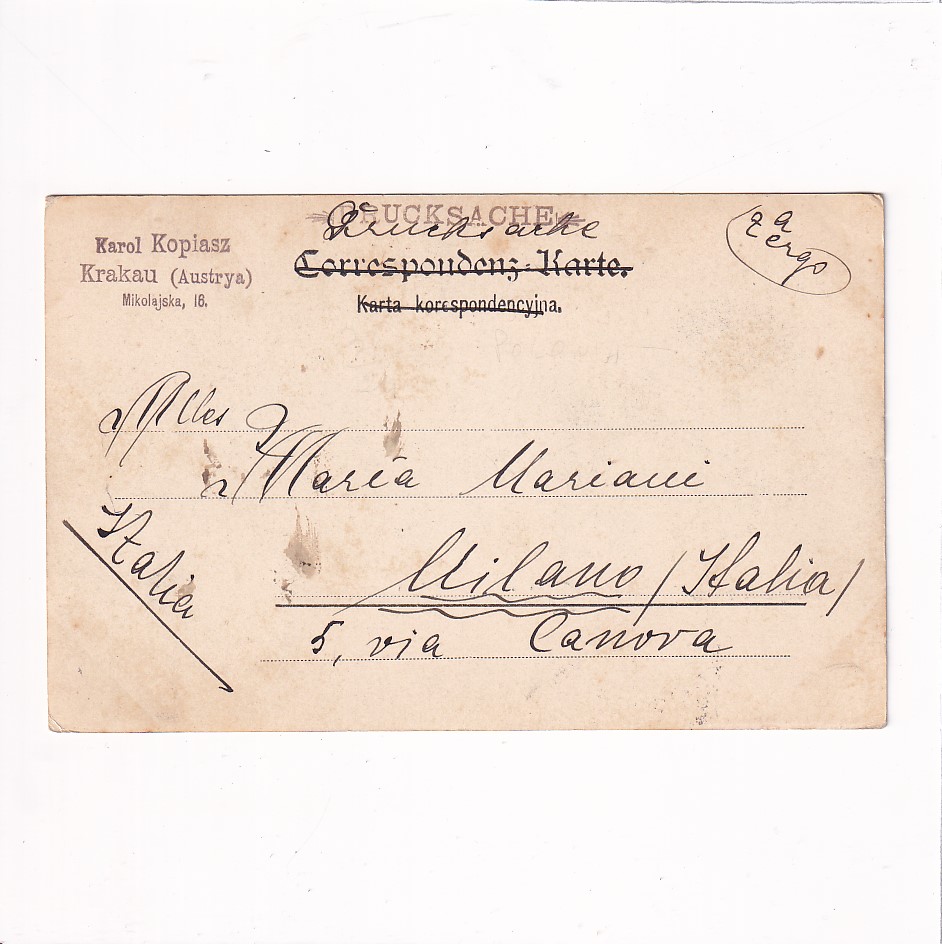 DRUCKSACHE
Drucksache
Karol Kopiasz
Krakau (Austrya)
Mikołajska, 16.
Correspondenz-Karte.
Karta korespondencyjna.
Mlles
Maria Mariani
Italia
Milano (Italia)
5, via Canova